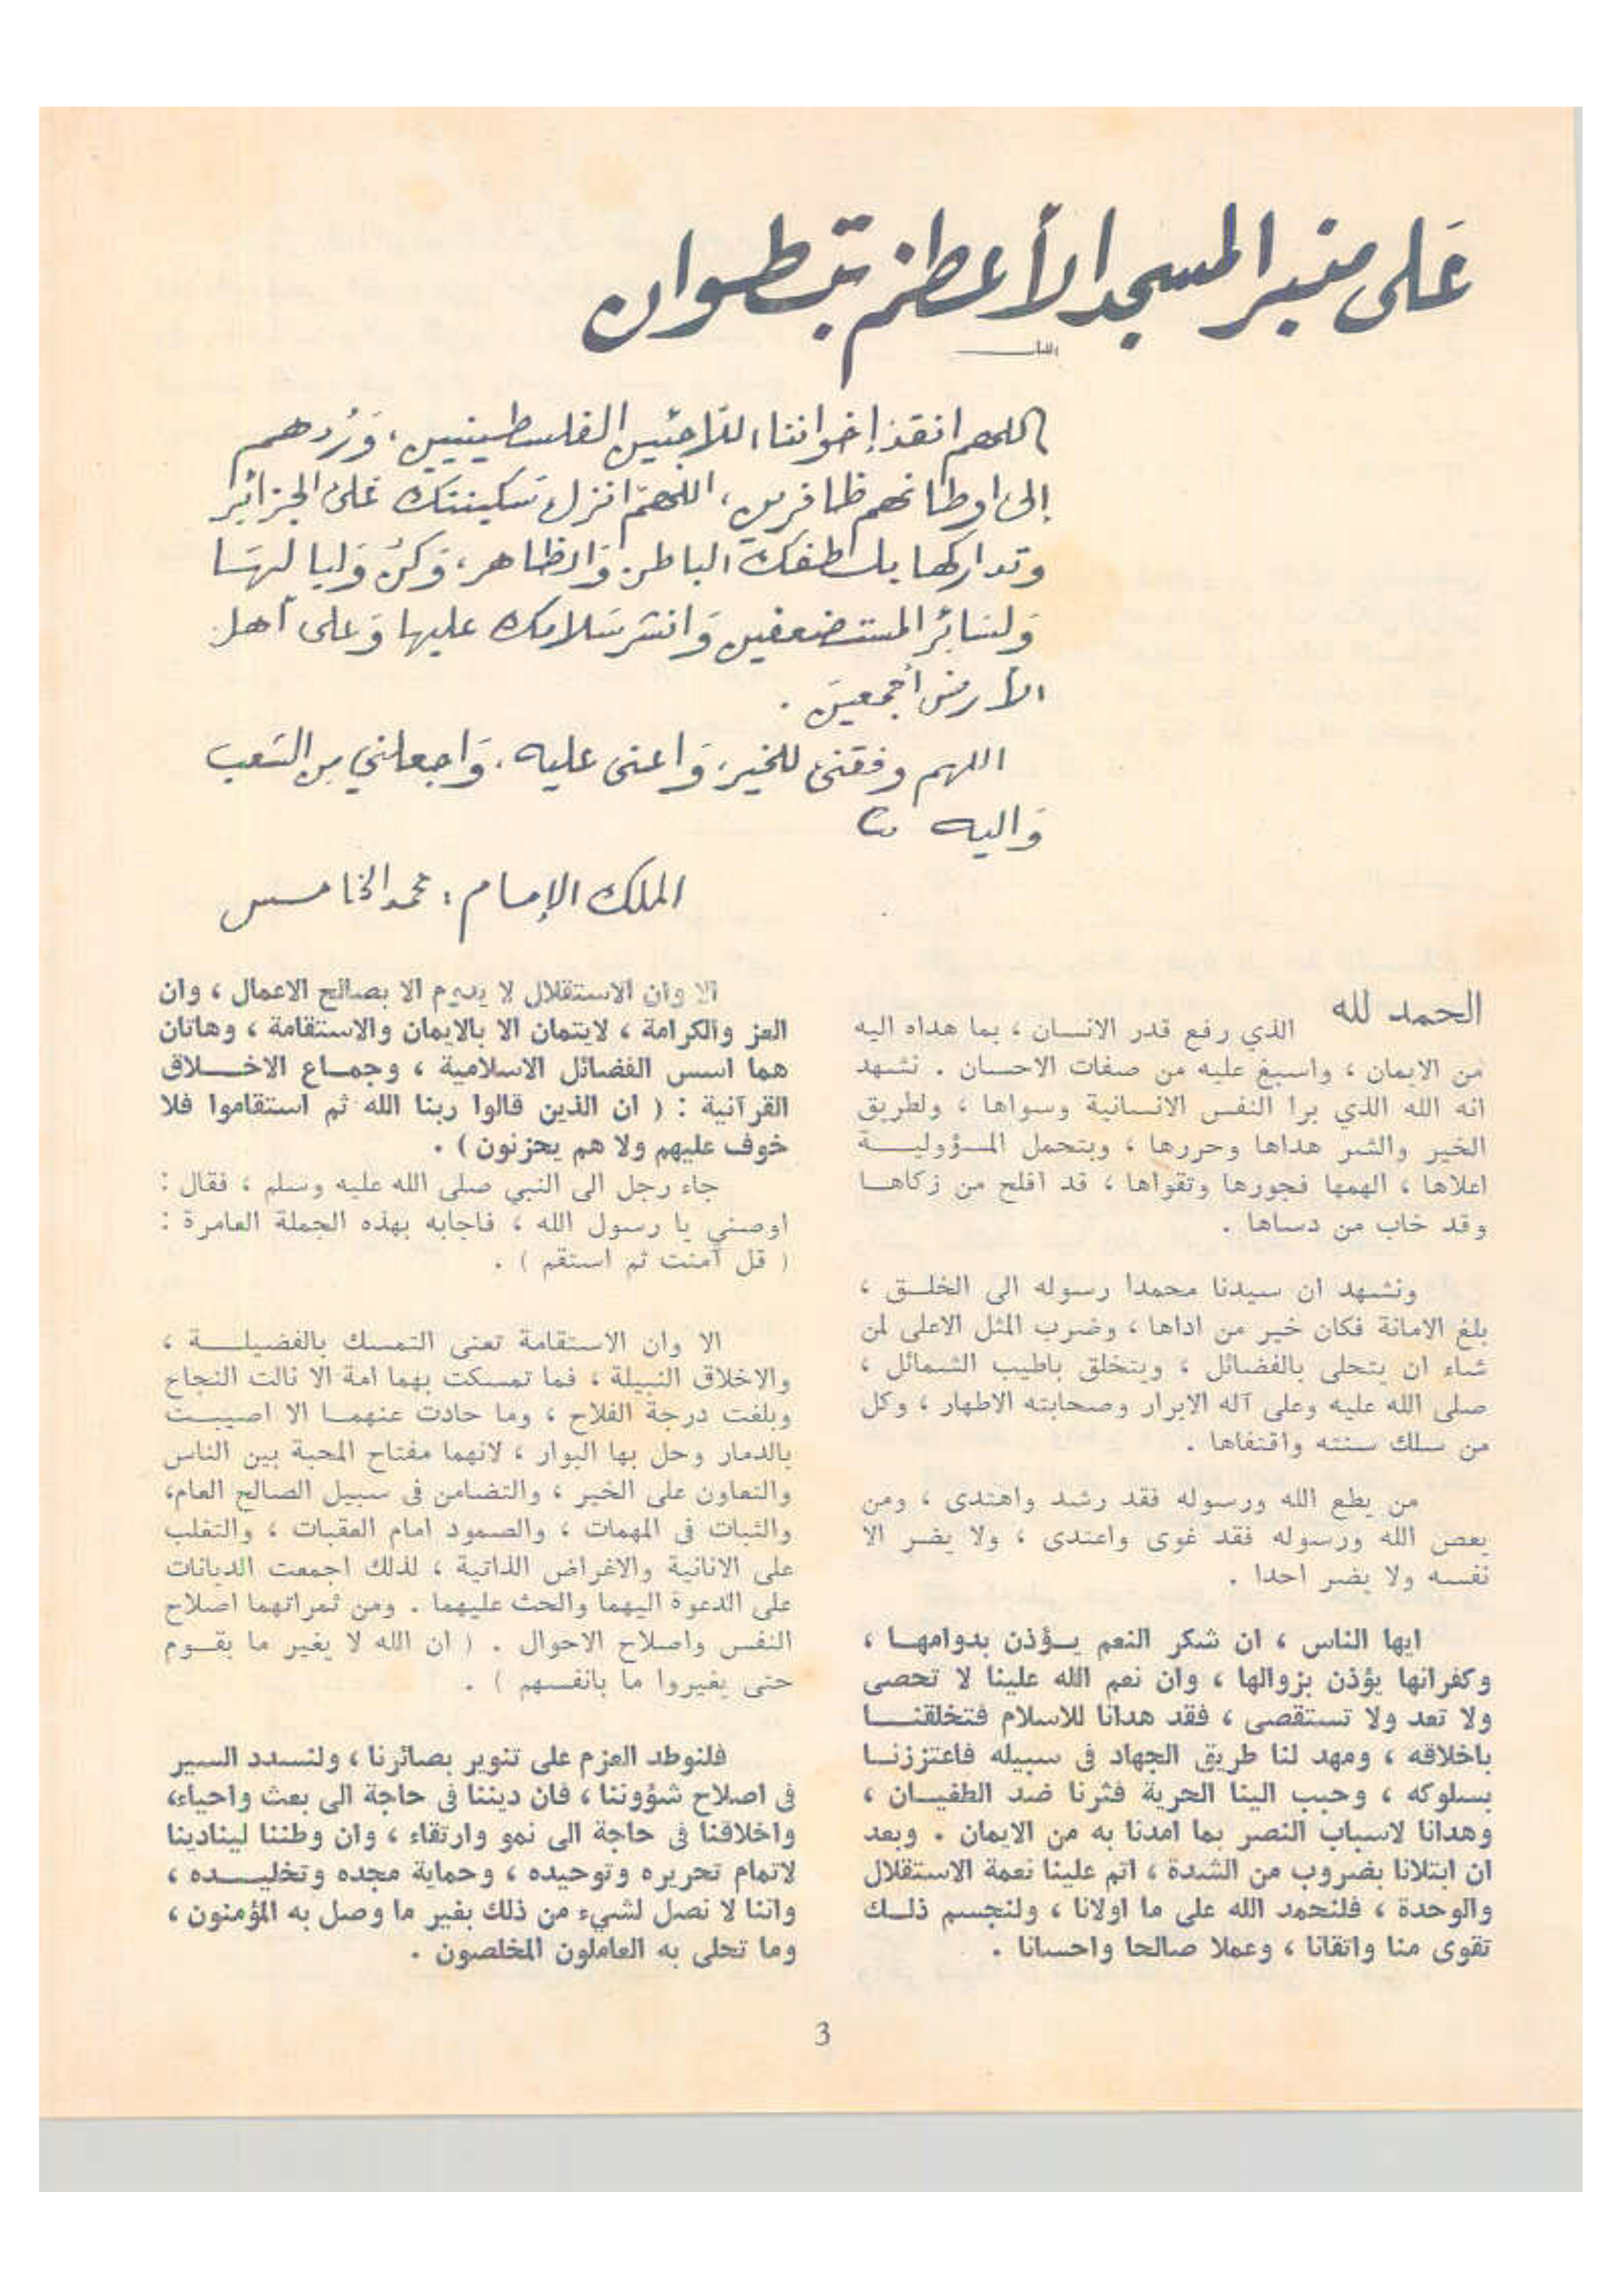 عَلى منبر المسجد الأعظم بتطوان
اللهم انقذ إخواننا اللاجئين الفلسطينيين، وَرُدهم
إلى اوطانهم ظافرين، اللهمّ انزل سَكينتك عَلى الجزائر
وتداركها بلطفك الباطن وَالظاهر، وَكنْ وَليا لهَا
وَلسَائر المستضعفين وَانشر سَلامك عليها وَعلى أهل
الأرض أجمعينَ .
اللهم وفقني للخير، وَاعني عليه، وَاجعلني من الشعب
وَاليه
الملك الإمام : محمد الخامس
الحمد لله الذي رفع قدر الانسان ، بما هداه اليه
من الايمان ، واسبغ عليه من صفات الاحسان . نشهد
انه الله الذي برا النفس الانسانية وسواها ، ولطريق
الخير والشر هداها وحررها ، وبتحمل المسؤولية
اعلاها ، الهمها فجورها وتقواها ، قد افلح من زكاها
وقد خاب من دساها .
ونشهد ان سيدنا محمدا رسوله الى الخلق ،
بلغ الامانة فكان خير من اداها ، وضرب المثل الاعلى لمن
شاء ان يتحلى بالفضائل ، ويتخلق باطيب الشمائل ،
صلى الله عليه وعلى آله الابرار وصحابته الاطهار ، وكل
من سلك سنته واقتفاها .
من يطع الله ورسوله فقد رشد واهتدى ، ومن
يعص الله ورسوله فقد غوى واعتدى ، ولا يضر الا
نفسه ولا يضر احدا .
ايها الناس ، ان شكر النعم يؤذن بدوامها ،
وكفرانها يؤذن بزوالها ، وان نعم الله علينا لا تحصى
ولا تعد ولا تستقصى ، فقد هدانا للاسلام فتخلقنا
باخلاقه ، ومهد لنا طريق الجهاد فى سبيله فاعتززنا
بسلوكه ، وحبب الينا الحرية فثرنا ضد الطغيان ،
وهدانا لاسباب النصر بما امدنا به من الايمان . وبعد
ان ابتلانا بضروب من الشدة ، اتم علينا نعمة الاستقلال
والوحدة ، فلنحمد الله على ما اولانا ، ولنجسم ذلك
تقوى منا واتقانا ، وعملا صالحا واحسانا .
الا وان الاستقلال لا يدوم الا بصالح الاعمال ، وان
العز والكرامة ، لايتمان الا بالايمان والاستقامة ، وهاتان
هما اسس الفضائل الاسلامية ، وجماع الاخلاق
القرآنية : ( ان الذين قالوا ربنا الله ثم استقاموا فلا
خوف عليهم ولا هم يحزنون ) .
جاء رجل الى النبي صلى الله عليه وسلم ، فقال :
اوصني يا رسول الله ، فاجابه بهذه الجملة العامرة :
( قل آمنت ثم استقم ) .
الا وان الاستقامة تعنى التمسك بالفضيلة ،
والاخلاق النبيلة ، فما تمسكت بهما امة الا نالت النجاح
وبلغت درجة الفلاح ، وما حادت عنهما الا اصيبت
بالدمار وحل بها البوار ، لانهما مفتاح المحبة بين الناس
والتعاون على الخير ، والتضامن فى سبيل الصالح العام،
والثبات فى المهمات ، والصمود امام العقبات ، والتغلب
على الانانية والاغراض الذاتية ، لذلك اجمعت الديانات
على الدعوة اليهما والحث عليهما . ومن ثمراتهما اصلاح
النفس واصلاح الاحوال . ( ان الله لا يغير ما بقوم
حتى يغيروا ما بانفسهم ) .
فلنوطد العزم على تنوير بصائرنا ، ولنسدد السير
فى اصلاح شؤوننا ، فان ديننا فى حاجة الى بعث واحياء،
واخلاقنا فى حاجة الى نمو وارتقاء ، وان وطننا لينادينا
لاتمام تحريره وتوحيده ، وحماية مجده وتخليده ،
واننا لا نصل لشيء من ذلك بغير ما وصل به المؤمنون ،
وما تحلى به العاملون المخلصون .
3